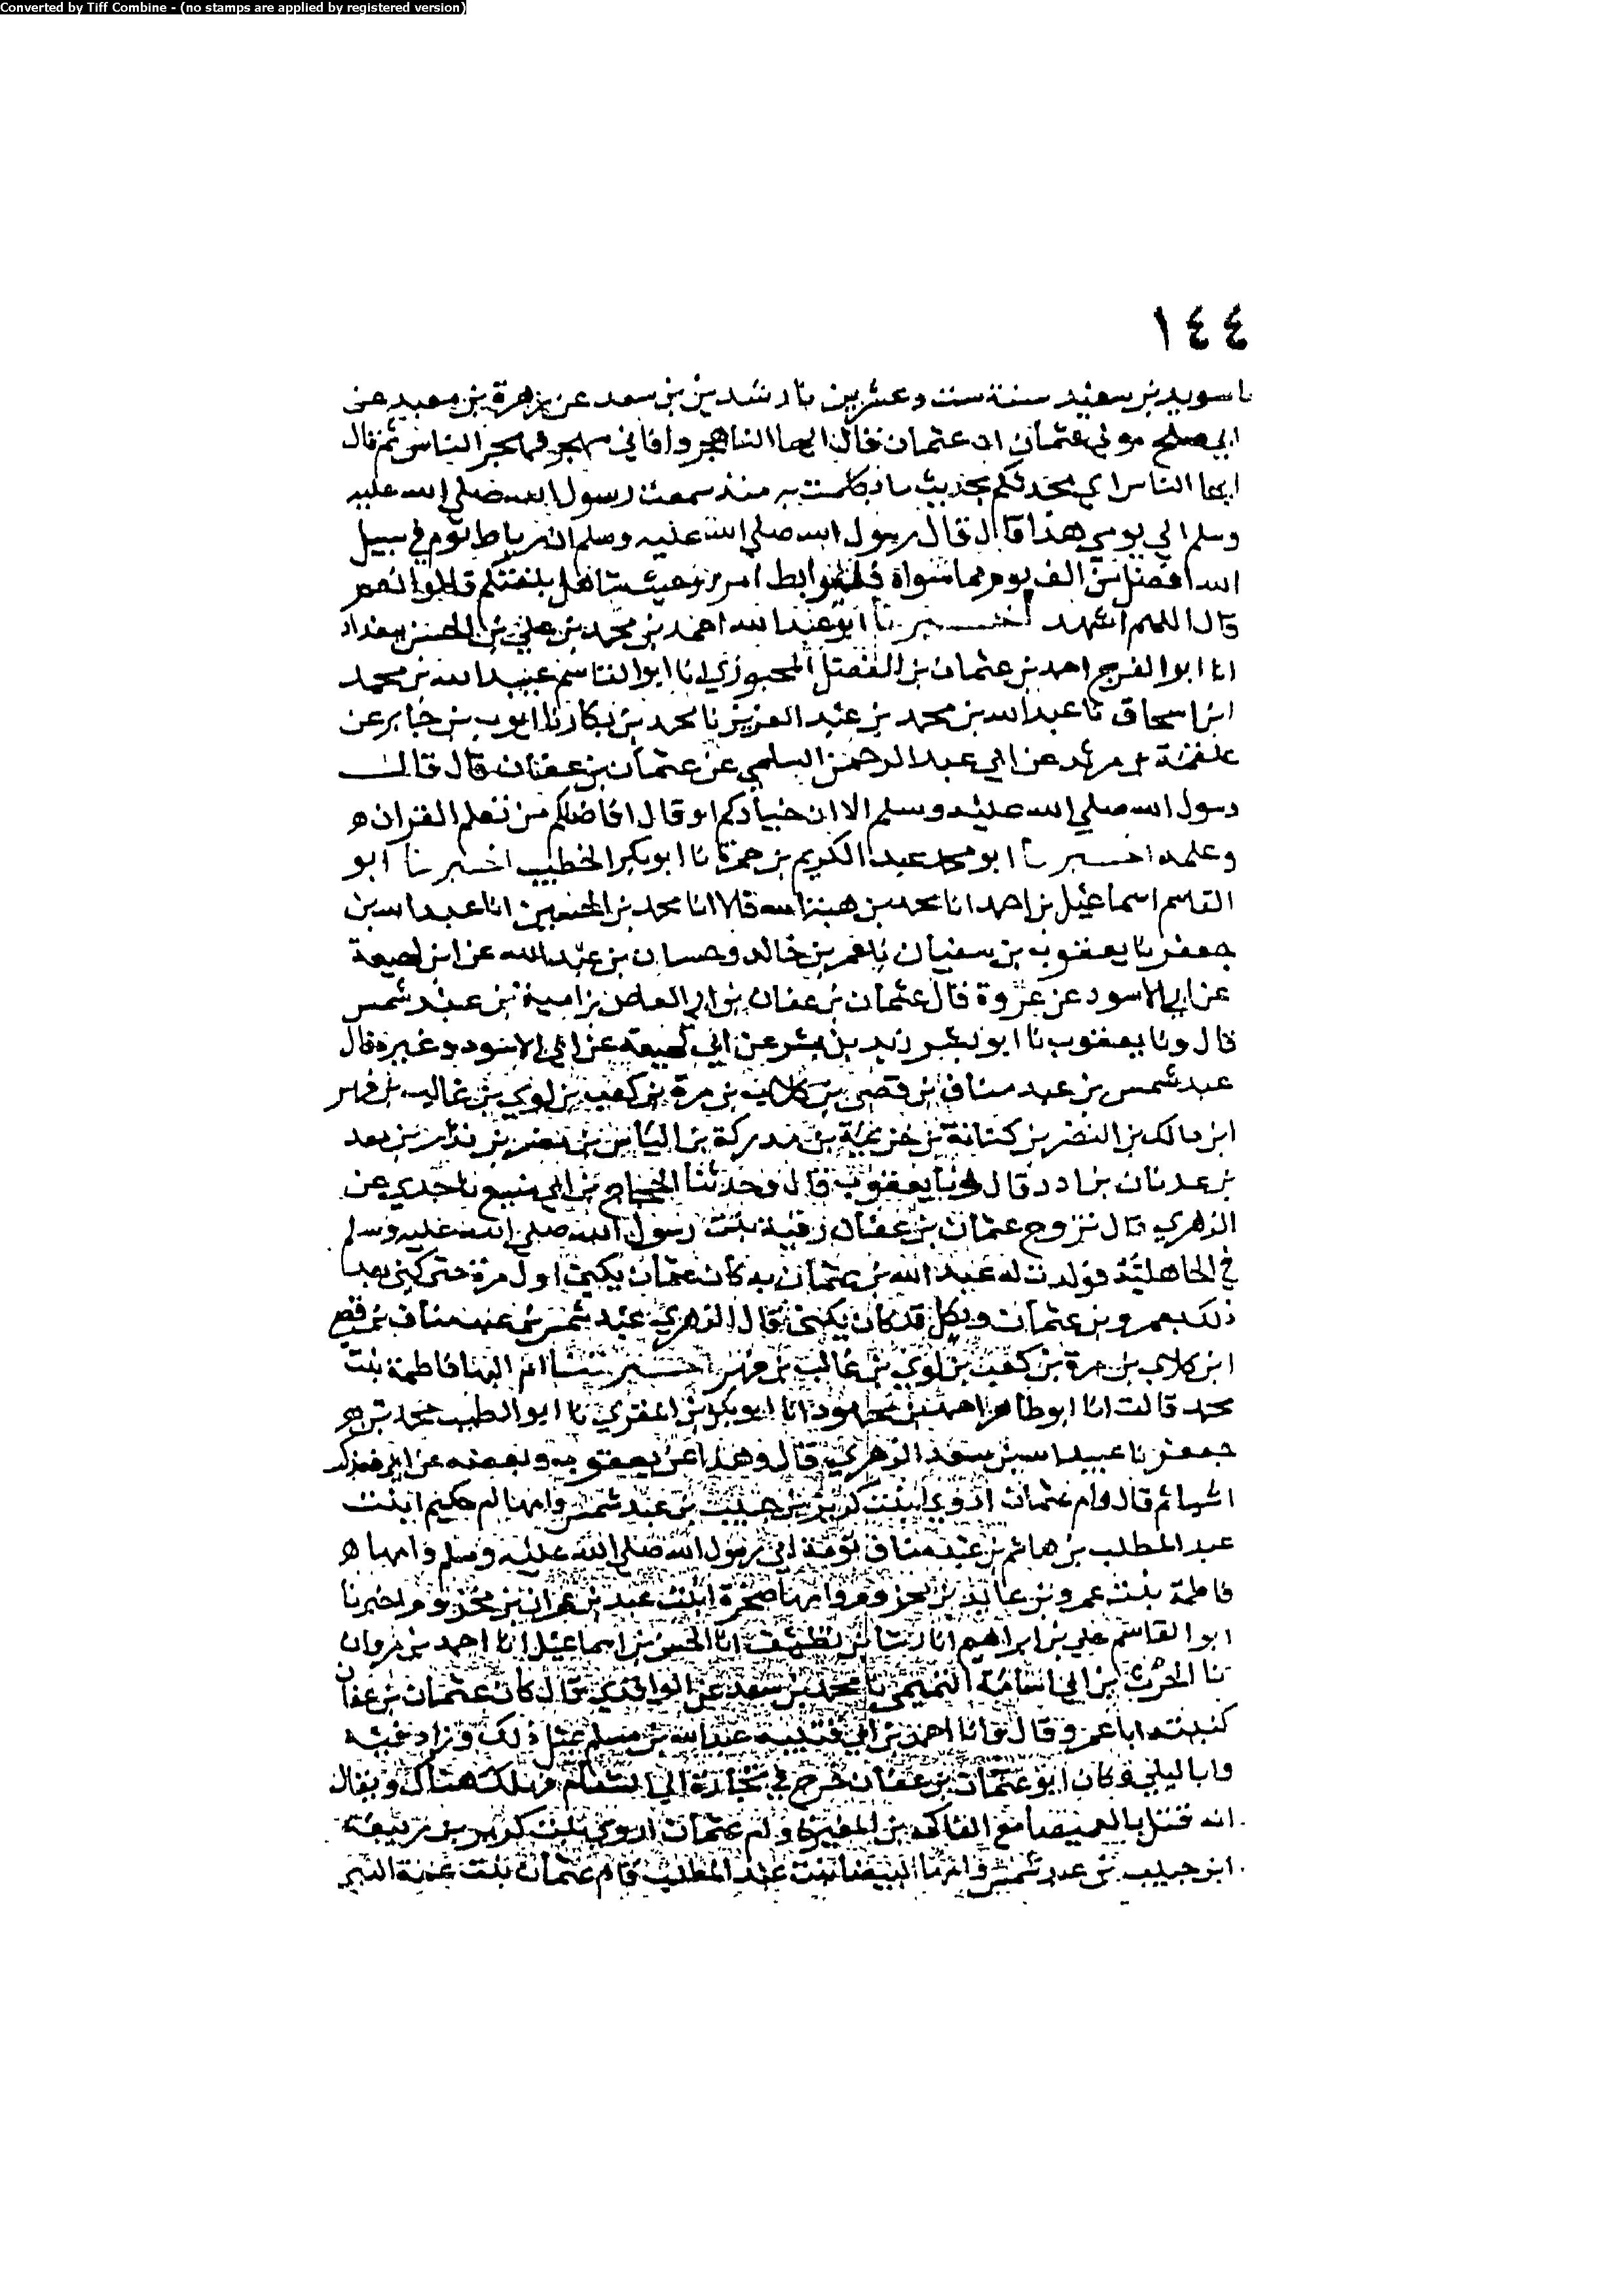 Converted by Tiff Combine - (no stamps are applied by registered version)
١٤٤
نا سويد بن سعيد سنة ست وعشرين نا رشدين بن سعد عن زهرة بن معبد عن
ابي صلح مولى عثمان ان عثمان قال ايها الناس هجروا فاني مهجر فهجر الناس ثم قال
ايها الناس اني محدثكم بحديث ما تكلمت به منذ سمعت رسول الله صلى الله عليه
وسلم الى يومي هذا قال قال رسول الله صلى الله عليه وسلم ان رباط يوم في سبيل
الله افضل من الف يوم مما سواه فليرابط امرؤ حيث شا هل بلغتكم قالوا نعم
قال اللهم اشهد اخبرنا ابو عبد الله احمد بن محمد بن علي بن الحسن ببغداد
انا ابو الفرج احمد بن عثمان بن الفضل المخبوزي انا ابو القاسم عبيد الله بن محمد
ابن اسحاق نا عبد الله بن محمد بن عبد العزيز نا محمد بن بكار نا ايوب بن جابر عن
علقمة بن مرثد عن ابي عبد الرحمن السلمي عن عثمان بن عفان قال قال
رسول الله صلى الله عليه وسلم الا ان خياركم او قال افاضلكم من تعلم القران ه
وعلمه اخبرنا ابو محمد عبد الكريم بن حمزة نا ابو بكر الخطيب اخبرنا ابو
القاسم اسماعيل بن احمد انا محمد بن هبة الله قالا انا محمد بن الحسين انا عبد الله بن
جعفر نا يعقوب بن سفيان نا عمر بن خالد وحسان بن عبد الله عن ابن لهيعة
عن ابي الاسود عن عروة قال عثمان بن عفان بن ابي العاص بن امية بن عبد شمس
قال ونا يعقوب نا ابو بشر زيد بن بشر عن ابي لهيعة عن ابي الاسود وغيره قال
عبد شمس بن عبد مناف بن قصي بن كلاب بن مرة بن كعب بن لوي بن غالب بن فهر
ابن مالك بن النضر بن كنانة بن خزيمة بن مدركة بن الياس بن مضر بن نزار بن معد
بن عدنان بن ادد قال ونا يعقوب قال وحدثنا الحجاج بن ابي منيع نا جدي عن
الزهري قال تزوج عثمان بن عفان رقية بنت رسول الله صلى الله عليه وسلم
في الجاهلية فولدت له عبد الله بن عثمان به كان عثمان يكنى اول مرة حتى كني بعد
ذلك بعمرو بن عثمان وبكل قد كان يكنى قال الزهري عبد شمس بن عبد مناف بن قصي
ابن كلاب بن مرة بن كعب بن لوي بن غالب بن فهر اخبرتنا ام البها فاطمة بنت
محمد قالت انا ابو طاهر احمد بن محمود انا ابو بكر بن المقري نا ابو الطيب محمد بن ه
جعفر نا عبيد الله بن سعد الزهري قال وهذا عن يعقوب وبعضه عن
قال وام عثمان اروى ابنت كريز بن حبيب بن عبد شمس وامها ام حكيم ابنت
عبد المطلب بن هاشم بن عبد مناف رسول الله صلى الله عليه وسلم وامها ه
فاطمة بنت عمرو بن عايذ بن مخزوم وامها صخرة ابنت عبد بن عمران بن مخزوم اخبرنا
ابو القاسم علي بن ابراهيم انا رشا بن نظيف انا الحسن بن اسماعيل انا احمد بن مروان
نا الحرث بن ابي اسامة التميمي نا محمد بن سعد عن الواقدي قال كان عثمان بن عفان
كنيته ابا عمرو قال ونا احمد عبد الله بن مسلم مثل ذلك وزاد فيه
وابا ليلى وكان ابو عثمان بن عفان خرج في تجارة الى الشام فهلك هناك ويقال
انه قتل بالغميصا مع الفاكه بن المغيرة وام عثمان اروى بنت كريز بن ربيعة
ابن حبيب بن عبد شمس وامها البيضا بنت عبد المطلب فام عثمان بنت عمة النبي